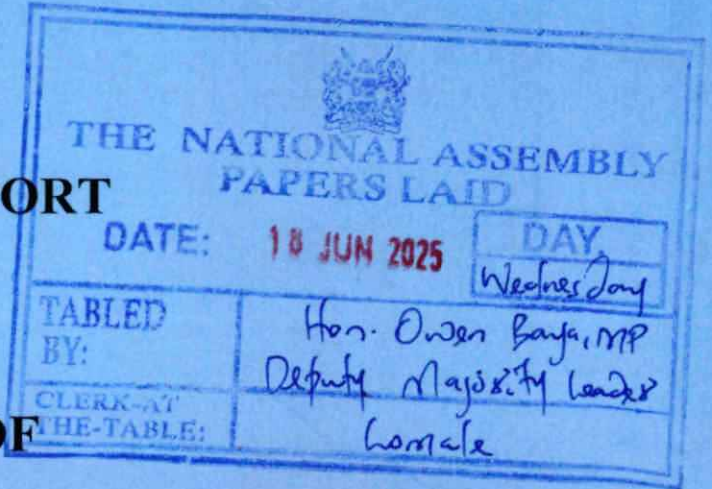 THE NATIONAL ASSEMBLY
PAPERS LAID
ORT
DATE: 18 JUN 2025 DAY.
Wednesday
TABLED BY: Hon. Owen Baya, MP
Deputy Majority Leader
CLERK-AT
THE-TABLE:
OF